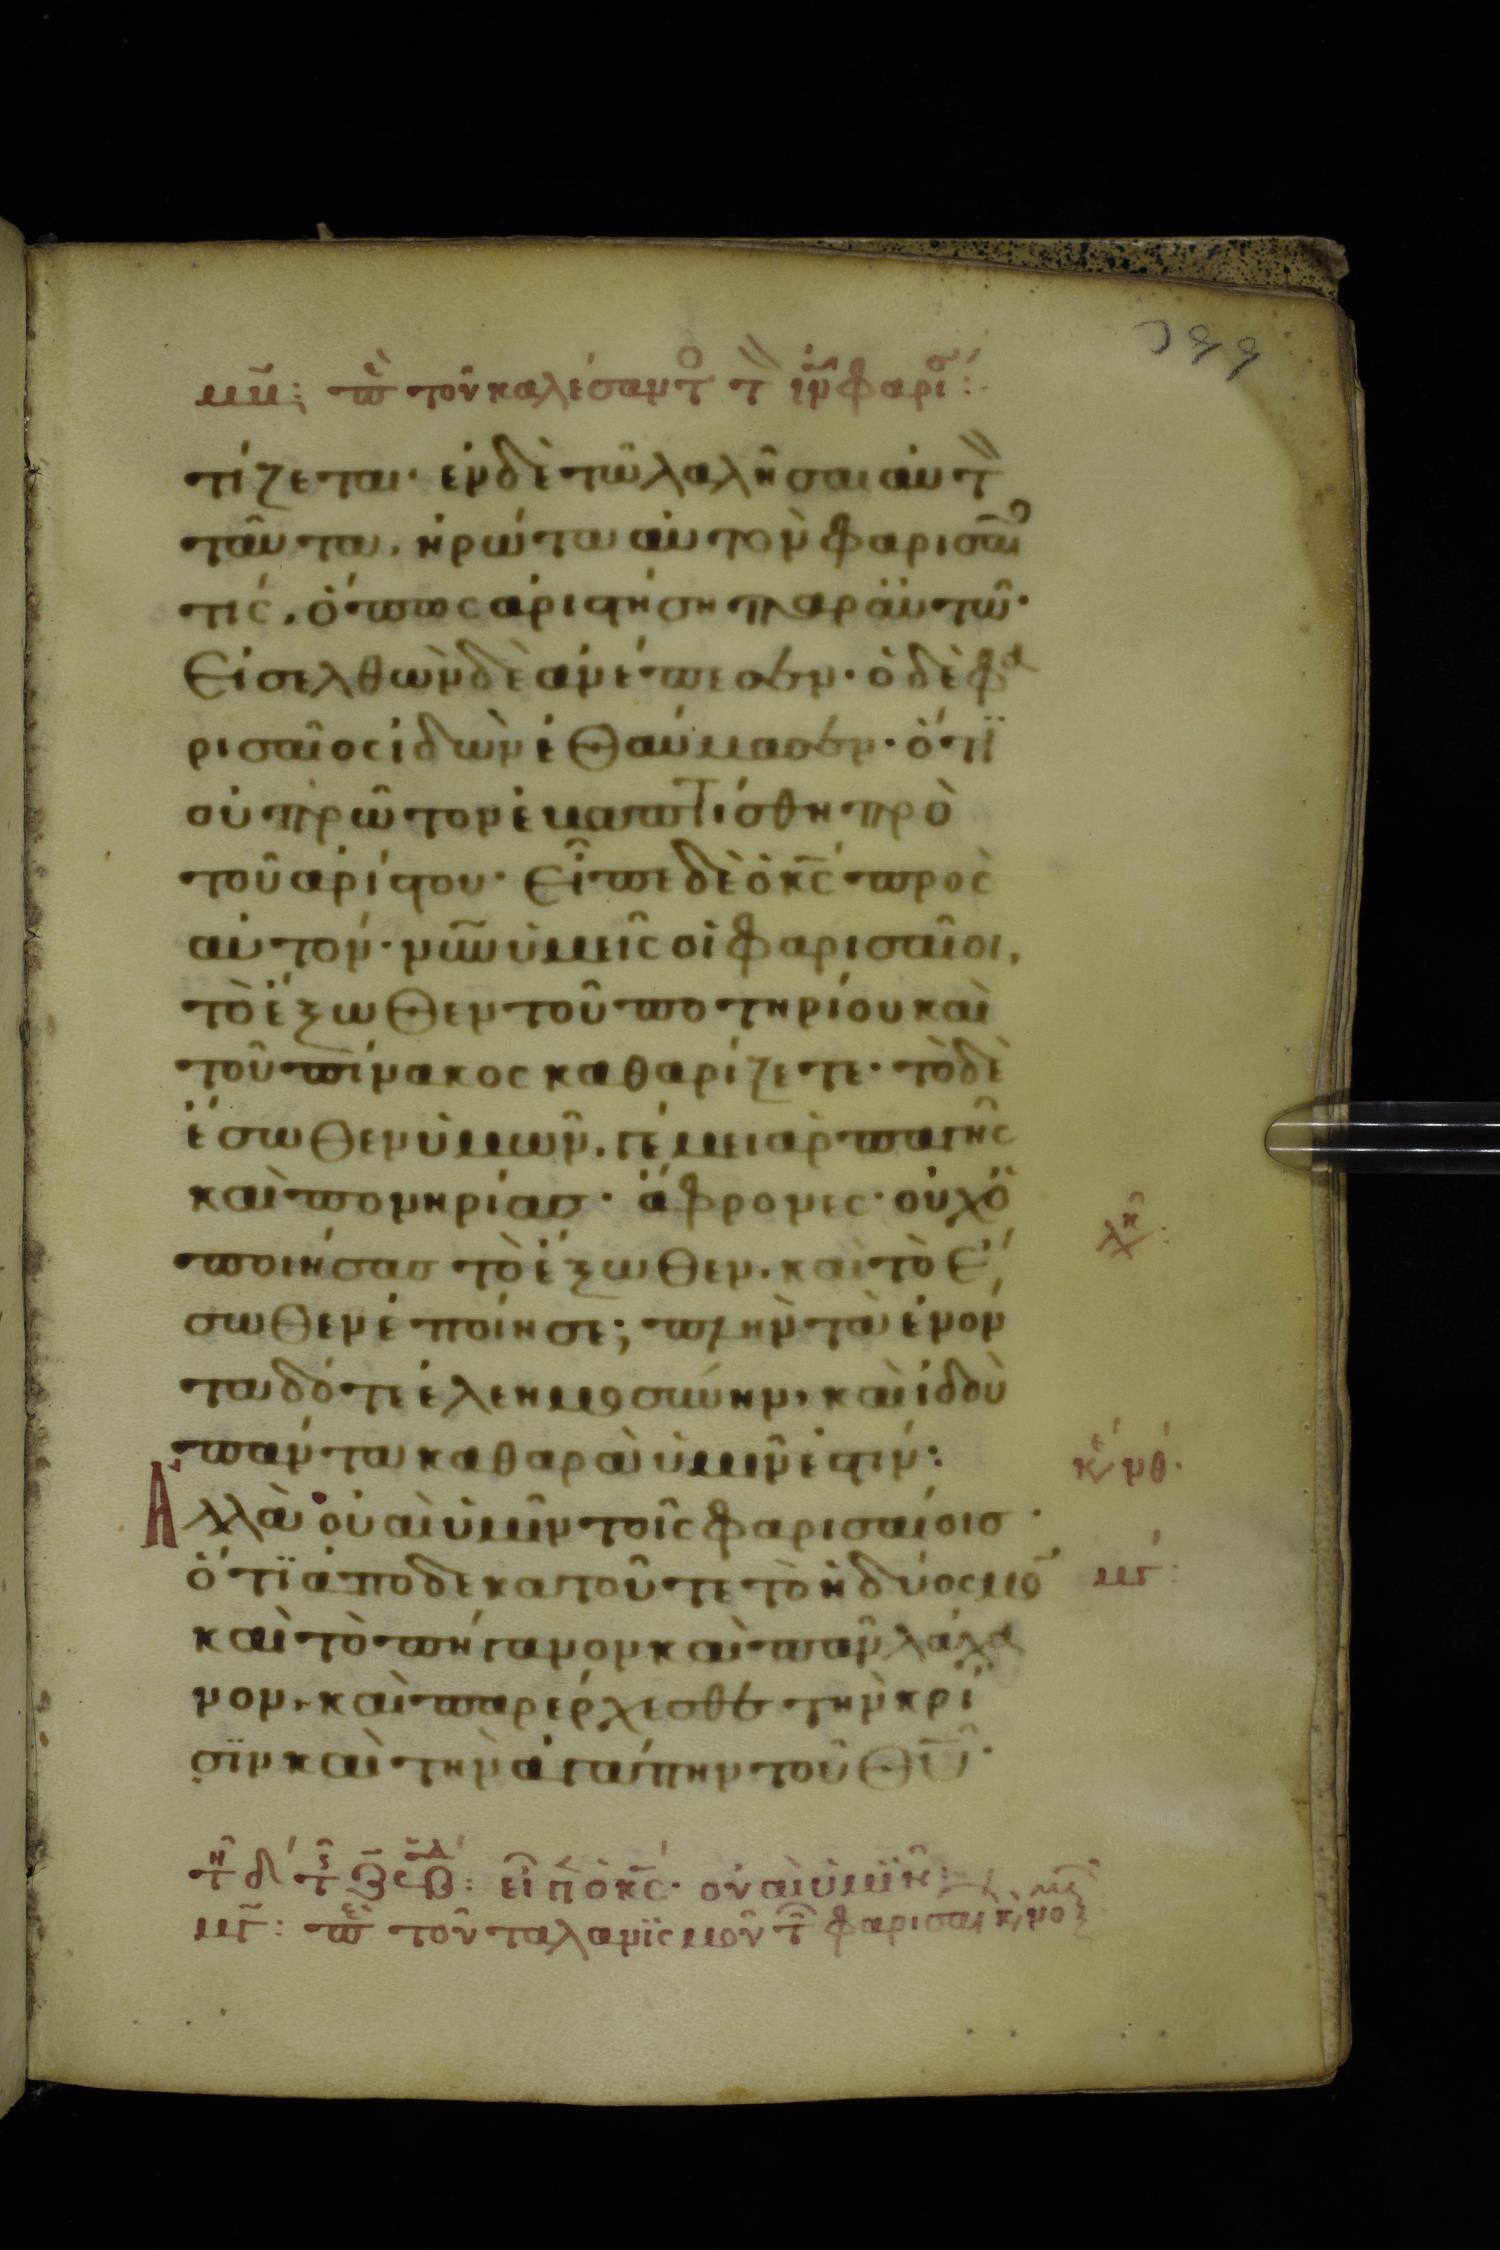 μβ: πε τοῦ καλέσαντο τ ιν φαρισ:
τίζεται· ἐν δὲ τῶ λαλῆσαι αὐτ
ταῦτα, ἠρώτα αὐτὸν φαρισαῖο
τίς, ὅπως ἀριστήση παρ' αὐτῶ·
Εἰσελθὼν δὲ ἀνέπεσεν· ὁ δὲ φα
ρισαῖος ἰδὼν ἐθαύμασεν· ὅτϊ
οὐ πρῶτον ἐβαπτίσθη πρὸ
τοῦ ἀρίστου· Εἶπε δὲ ὁ κς πρὸς
αὐτόν· νῦν ὑμεῖς οἱ φαρισαῖοι,
τὸ ἔξωθεν τοῦ ποτηρίου καὶ
τοῦ πίνακος καθαρίζετε· τὸ δὲ
ἔσωθεν ὑμῶν, γέμει ἁρπαγῆς
καὶ πονηρίασ· ἄφρονες· οὐχ ὁ
ποιήσασ τὸ ἔξωθεν, καὶ τὸ ἔ
σωθεν ἐποίησε; πλὴν τὰ ἐνόν
τα δότε ἐλεημοσύνην, καὶ ἰδοὺ
πάντα καθαρὰ ὑμῖν ἐστιν:
Ἀλλὰ οὐαὶ ὑμῖν τοῖς φαρισαίοισ·
ὅτϊ ἀποδεκατοῦτε τὸ ἡδύοσμο
καὶ τὸ πήγανον καὶ πᾶν λάχα
νον, καὶ παρέρχεσθε τὴν κρί
σϊν καὶ τὴν ἀγάπην τοῦ θυ·
εἶπ ὁ κς· οὐαὶ ὑμῖν
μγ: πε τοῦ ταλανϊσμοῦ τ φαρισαι